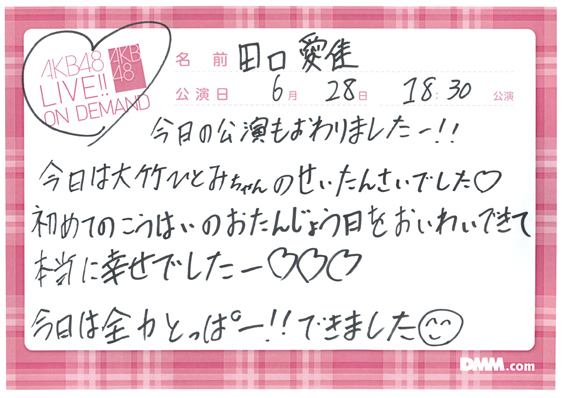 AKB48
LIVE!!
ON DEMAND
AKB
48
名前 田口愛佳
公演日 6月 28日 18:30 公演
今日の公演もおわりましたー!!
今日は大竹ひとみちゃんのせいたんさいでした♡
初めてのこうはいのおたんじょう日をおいわいできて
本当に幸せでしたー♡♡♡
今日は全力とっぱ°ー!!できました😊
DMM.com